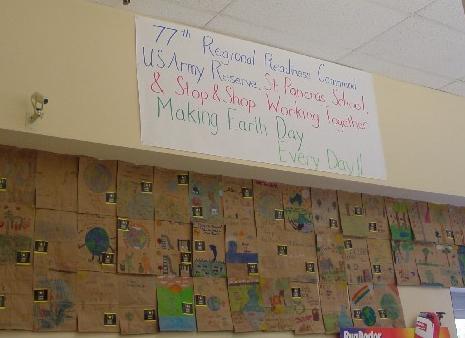 77th Regional Readiness Command
US Army Reserve, St. Pancras School,
& Stop & Shop Working Together
Making Earth Day
Every Day!!
RugDoctor